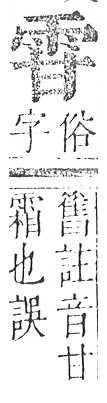 俗
字
舊註音甘
霜也誤